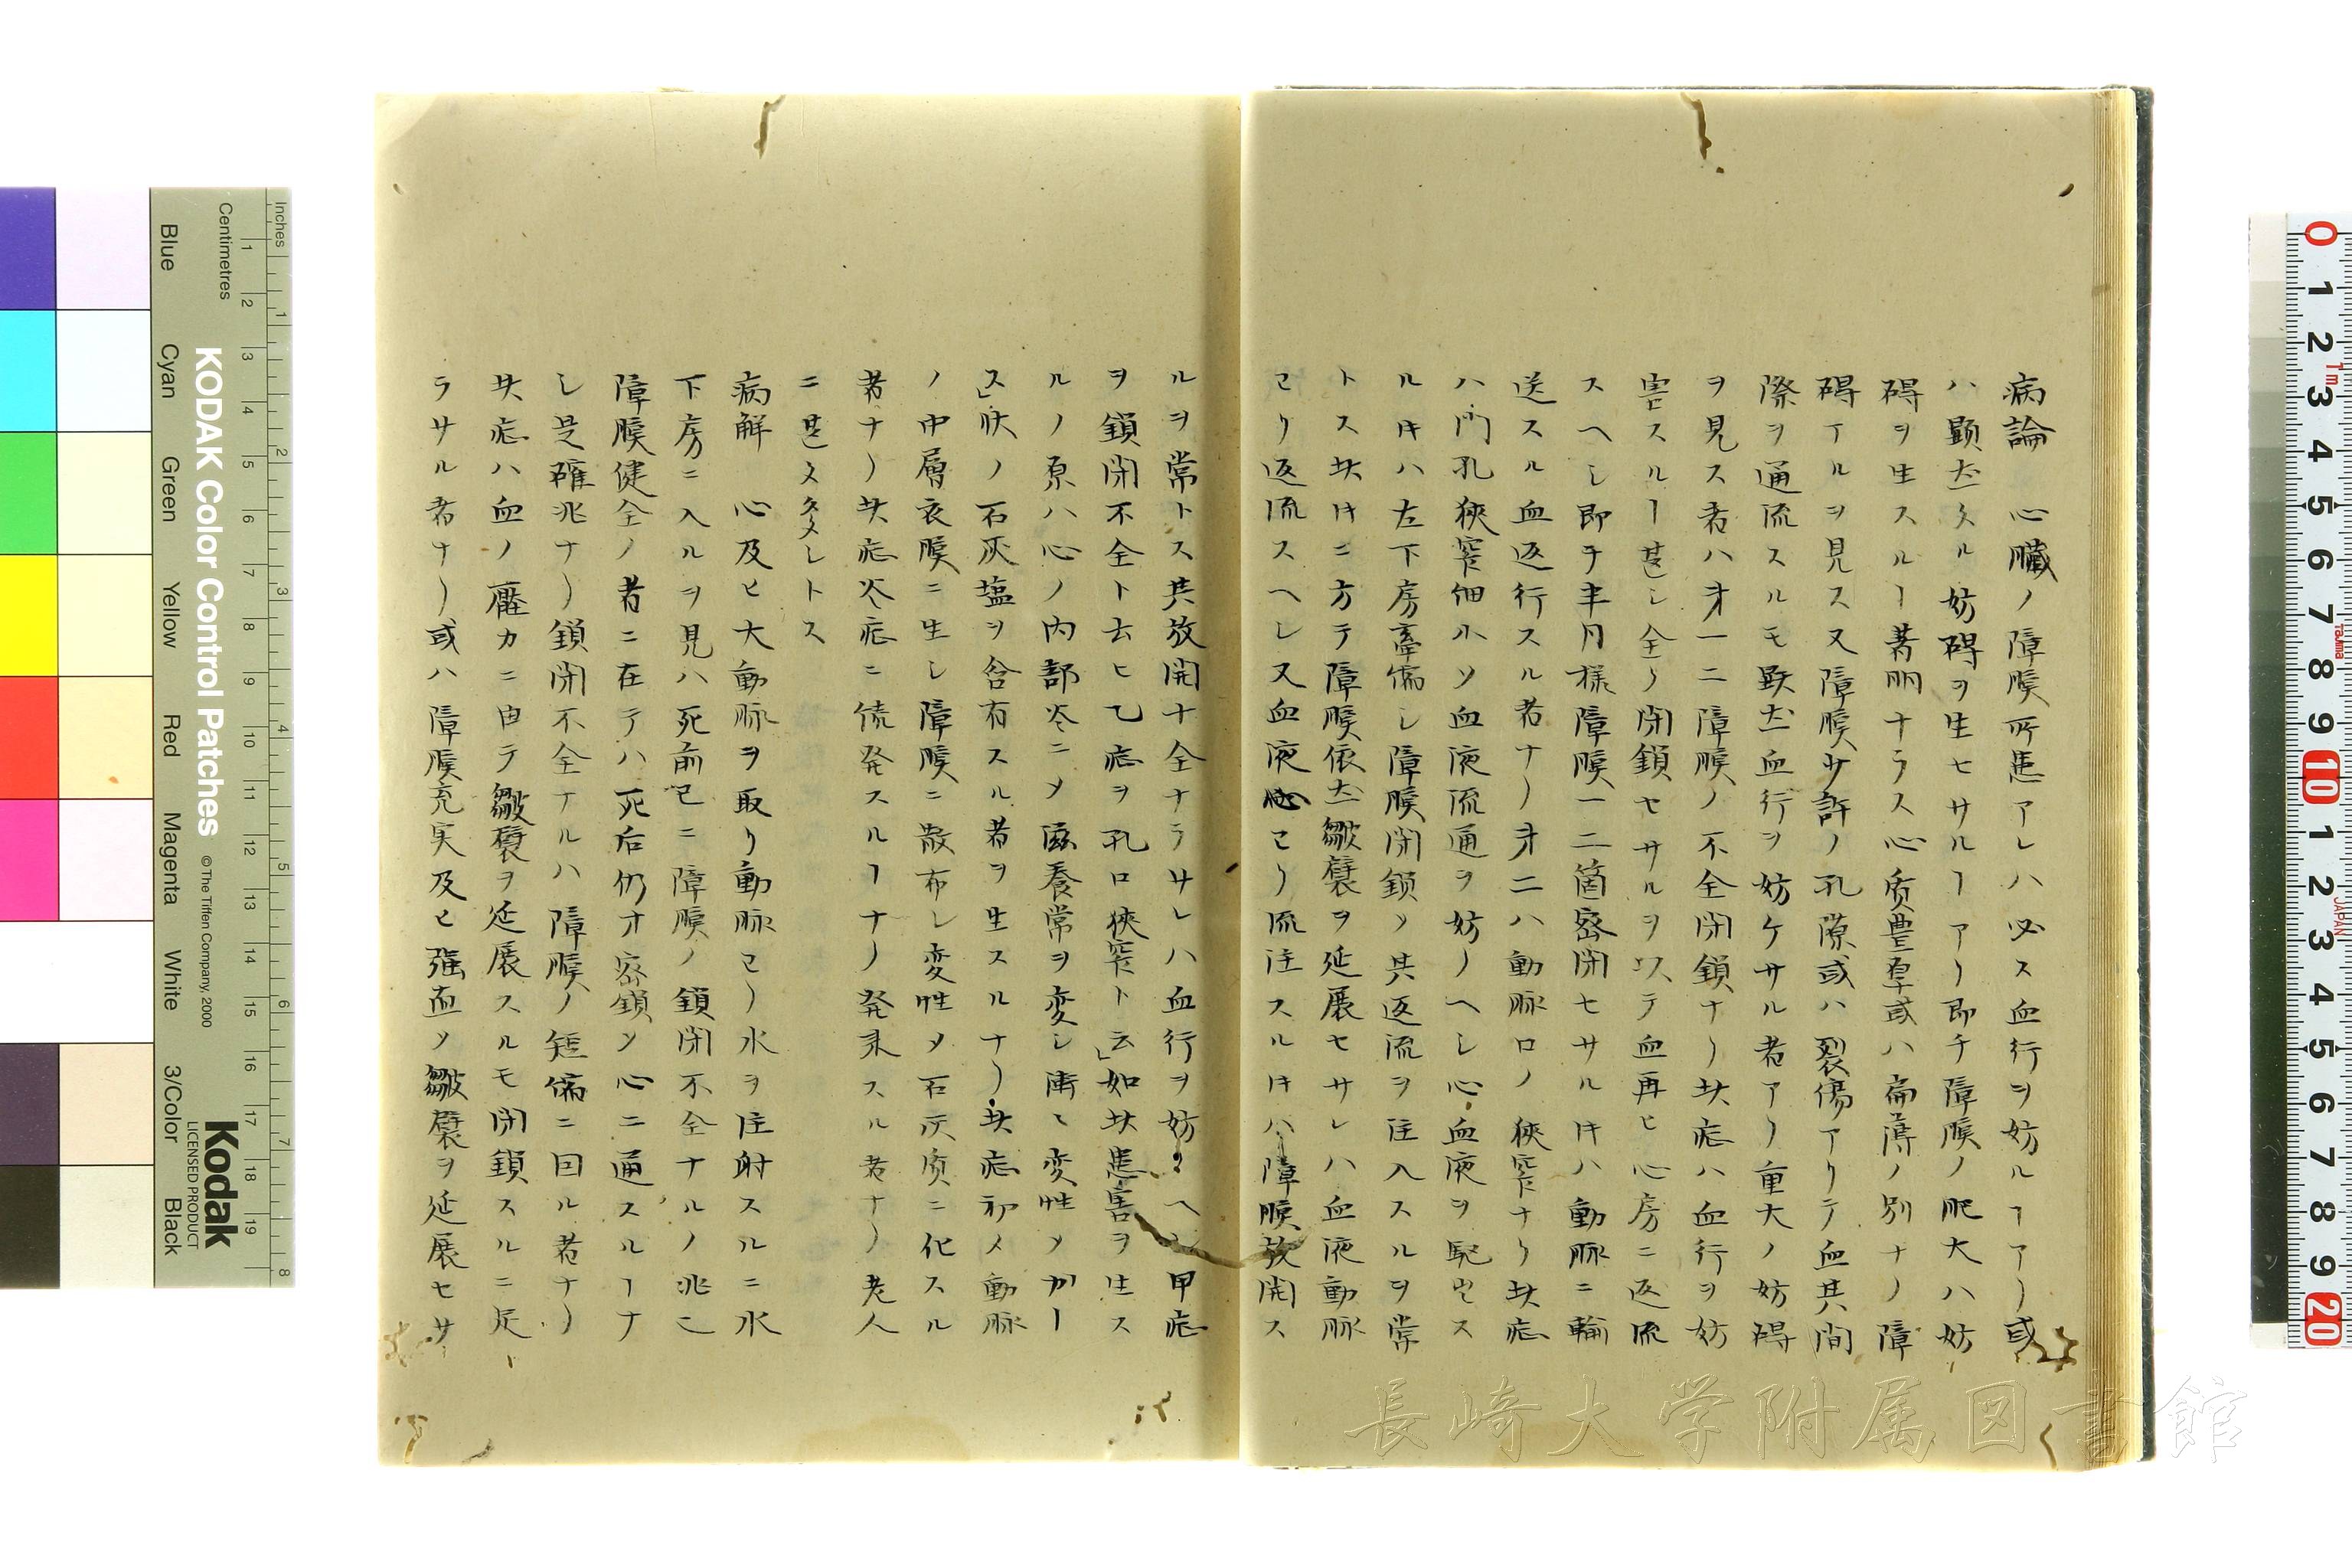 病論　心臓ノ障膜所患アレハ必ス血行ヲ妨ルヿアリ或
ハ顕然タル妨碍ヲ生セサルヿアリ即チ障膜ノ肥大ハ妨
碍ヲ生スルヿ著明ナラス心质豊厚或ハ扁薄ノ別ナク障
碍アルヲ見ス又障膜サ許ノ孔隙或ハ裂傷アリテ血其間
際ヲ通流スルモ顕然血行ヲ妨ケサル者アリ重大ノ妨碍
ヲ見ス者ハ第一ニ障膜ノ不全閉鎖ナリ此症ハ血行ヲ妨
害スルヿ甚シ全ク閉鎖セサルヲ以テ血再ヒ心房ニ返流
スヘシ即チ半月様障膜一二箇密閉セサル片ハ動脈ニ輸
送スル血返行スル者ナリ第二ハ動脈口ノ狹窄ナリ此症
ハ門孔狹窄細小ソ血液流通ヲ妨クヘシ心血液ヲ駆出ス
ル片ハ左下房牽縮シ障膜閉鎖ソ其返流ヲ注入スルヲ常
トス此片ニ方テ障膜依然皺襞ヲ延展セサレハ血液動脈
ヨリ返流スヘシ又血液心ヨリ流注スル片ハ障膜放開ス
ルヲ常トス其放開十全ナラサレハ血行ヲ妨クヘシ甲症
ヲ鎖閉不全ト云ヒ乙症ヲ孔口狹窄ト云」如此患害ヲ生ス
ルノ原ハ心ノ内部炎ニメ滋養常ヲ変シ漸々変性ソガー
ス」状ノ石灰塩ヲ含有スル者ヲ生スルナリ此症初メ動脈
ノ中層衣膜ニ生シ障膜ニ散布シ変性メ石灰质ニ化スル
者ナリ此症炎症ニ続発スルヿナリ発来スル者ナリ老人
ニ甚タ多シトス
病解　心及ヒ大動脈ヲ取リ動脈ヨリ水ヲ注射スルニ水
下房ニ入ルヲ見ハ死前已ニ障膜ノ鎖閉不全ナルノ兆ニ
障膜健全ノ者ニ在テハ死后仍オ密鎖ソ心ニ通スルヿナ
シ是確兆ナリ鎖閉不全ナルハ障膜ノ短縮ニ因ル者ナリ
此症ハ血ノ壓力ニ由テ皺襞ヲ延展スルモ閉鎖スルニ足
ラサル者ナリ或ハ障膜充実及ヒ強直ソ皺襞ヲ延展セサ
長崎大学附属図書館
KODAK Color Control Patches
© The Tiffen Company, 2000
Kodak
LICENSED PRODUCT
Inches
Centimetres
Blue
Cyan
Green
Yellow
Red
Magenta
White
3/Color
Black